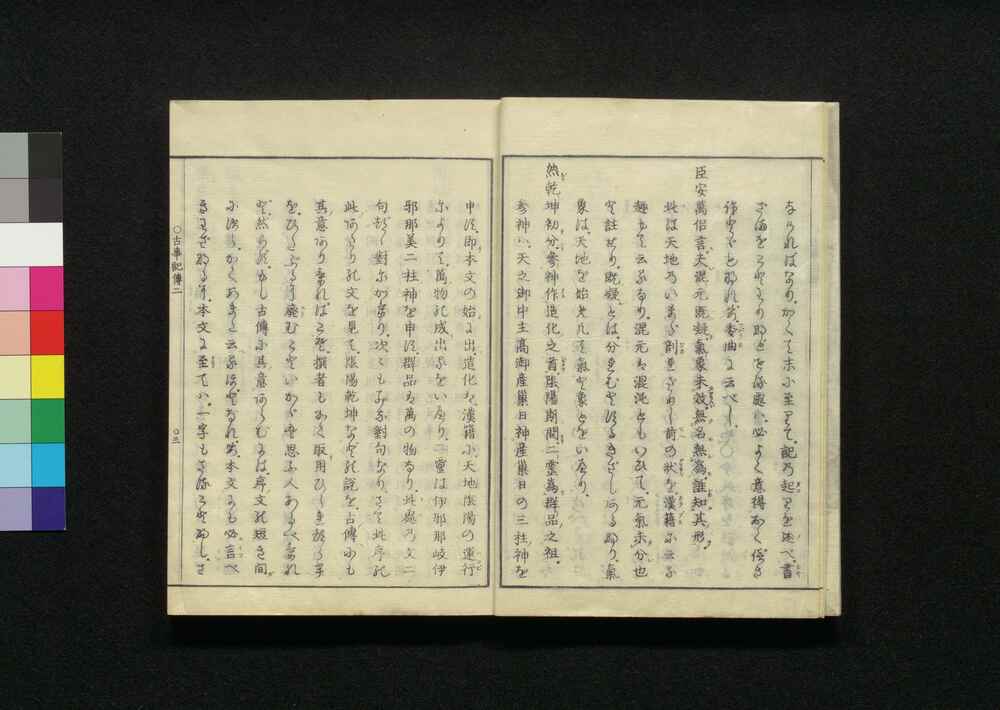 なければなり、かくて末に至りて、記の起りを述べ、書
臣安萬侶言、夫混元既凝、氣象未效、無名無爲、誰知其形、
此は天地のいまだ剖れざりし前の状を、漢籍に云る
趣もて云るなり、混元は混沌ともいひて、元氣未分也
と註せり、既凝とは、分れむとするきざしあるなり、氣
象は、天地を始め凡て氣と象とをいへり、
然乾坤初分、參神作造化之首、陰陽斯開、二靈爲群品之祖、
參神は、天之御中主高御産巣日神産巣日の三柱神を
申す、即本文の始に出、造化は、漢籍に、天地陰陽の運行
によりて、萬物の成出るをいへり、二靈は伊邪那岐伊
邪那美二柱神を申す、群品は萬の物なり、此處の文二
句づゝ對にかけり、次々もみな對句なり、さて此序の
此わたりの文を見て、陰陽乾坤などの説を、古傳にも
其意ありければこそ、撰者もかく取用ひ
をひたぶるに廢むことはいかゞと思ふ人あるべけれ
ど、然らず、もし古傳に其意あらむには、序文の短き間
にすら、かくあまた云るほどなれば、本文にも必言べ
きわざなるに、本文に至ては、一字もさることなし、さ
○古事記傳二
○三